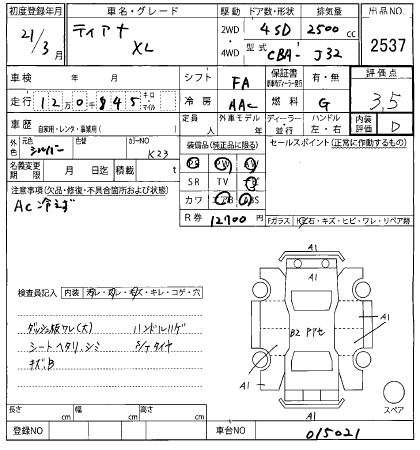 初度登録年月
車名・グレード
駆動
ドア数・形状
排気量
出品NO.
21年 3月
ティアナ
XL
2WD
4WD
4SD
2500 cc
型式
CBA- J32
2537
車検 年 月
シフト
FA
保証書
有・無
評価点
走行 12万0千845 キロ・マイル
冷房
AAC
燃料
G
3.5
車歴
自家用・レンタ・事業用( )
定員 人
外車モデル 年
ディーラー・並行
ハンドル 左・右
内装評価
D
外色
元色
シルバー
色替
カラーNO
K23
装備品(純正品に限る)
セールスポイント(正常に作動するもの)
名義変更期限 月 日迄
積載 t
PS PW AW
SR TV
カワ エアB ABS
注意事項(欠品・修復・不具合箇所および状態)
AC冷えず
R券 12700 円
Fガラス
石・キズ・ヒビ・ワレ・リペア跡
検査員記入
内装
ヨゴレ・スレ・キズ・キレ・コゲ・穴
ダッシュ板ワレ(大) ハンドルハゲ
シートヘタリ、シミ S/Tタイヤ
キズ、B
A1
A1
B2
A1
A1
A1
スペア
長さ cm
幅 cm
高さ cm
登録NO
車台NO
015021